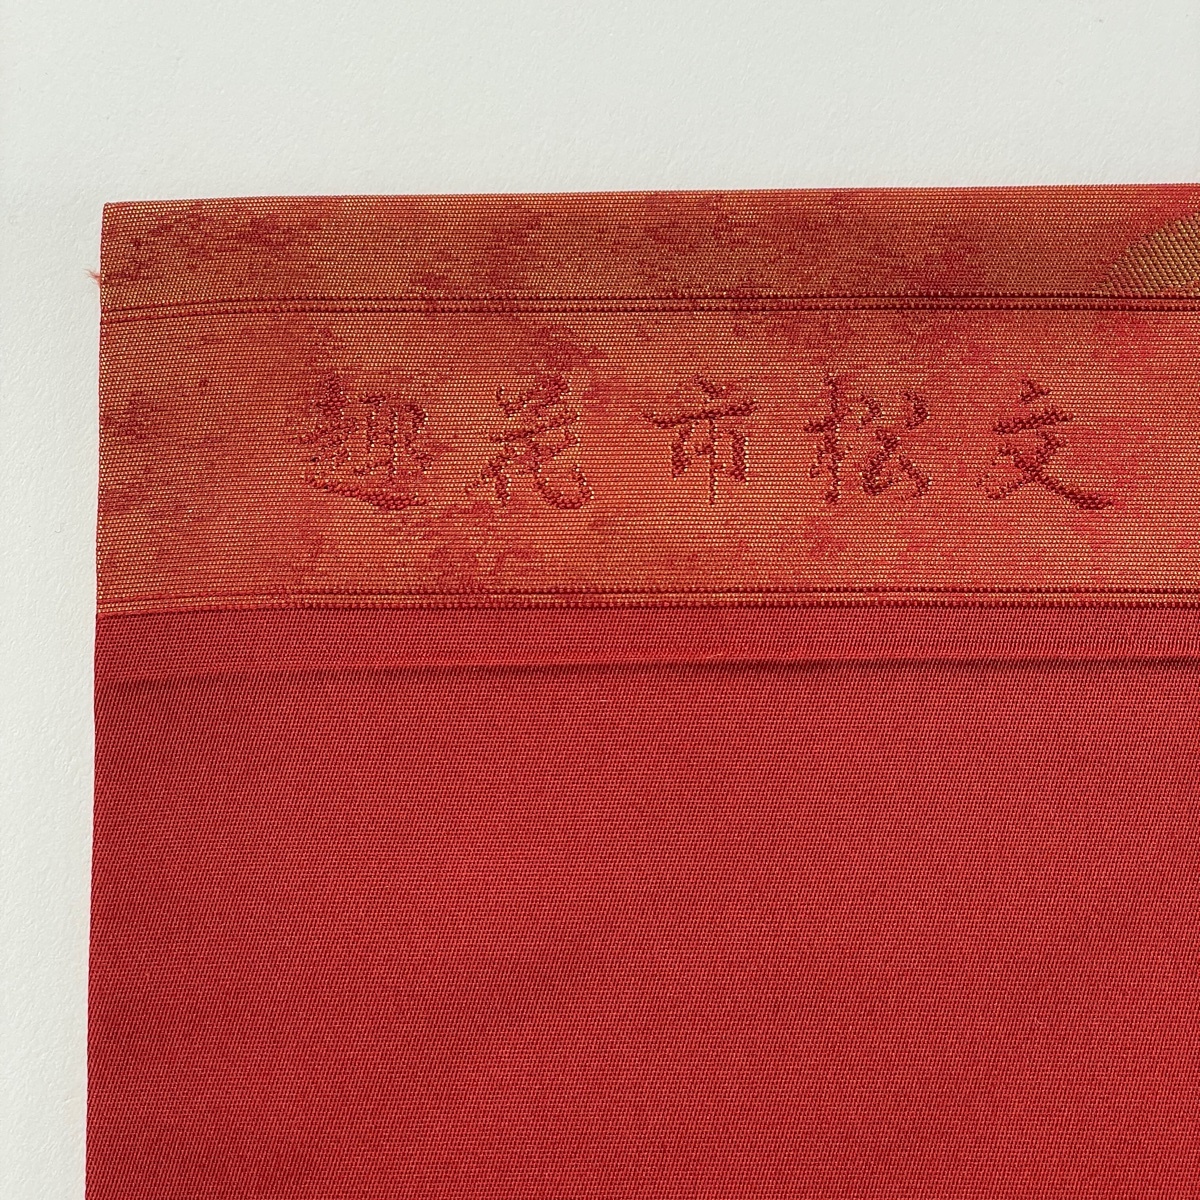 趣花市松文